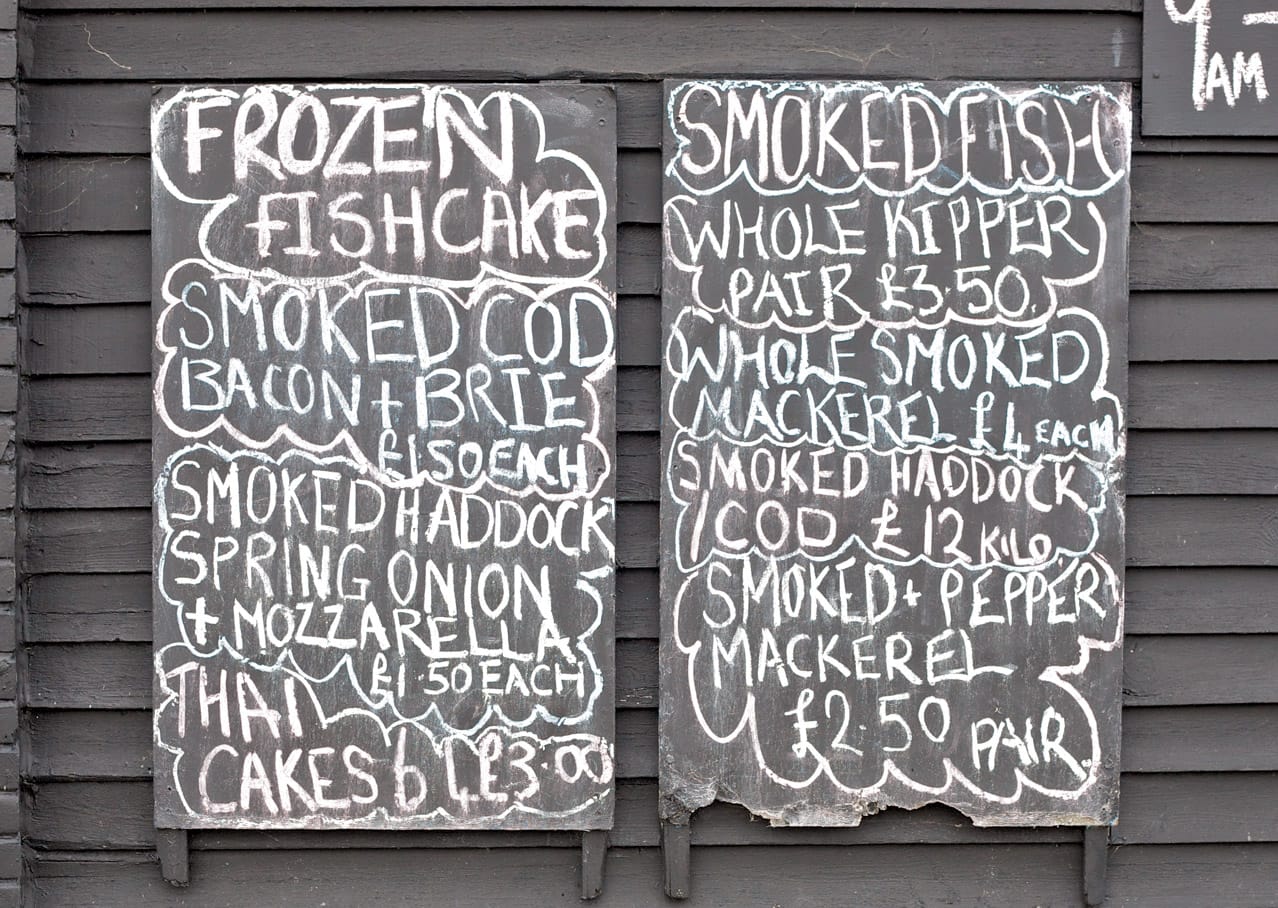 FROZEN
FISHCAKE
SMOKED COD
BACON + BRIE
£1.50 EACH
SMOKED HADDOCK
SPRING ONION
+ MOZZARELLA
£1.50 EACH
THAI
CAKES 6 £3.00
SMOKED FISH
WHOLE KIPPER
PAIR £3.50
WHOLE SMOKED
MACKEREL £4 EACH
SMOKED HADDOCK
/ COD £12 KILO
SMOKED + PEPPER
MACKEREL
£2.50 PAIR
9AM -